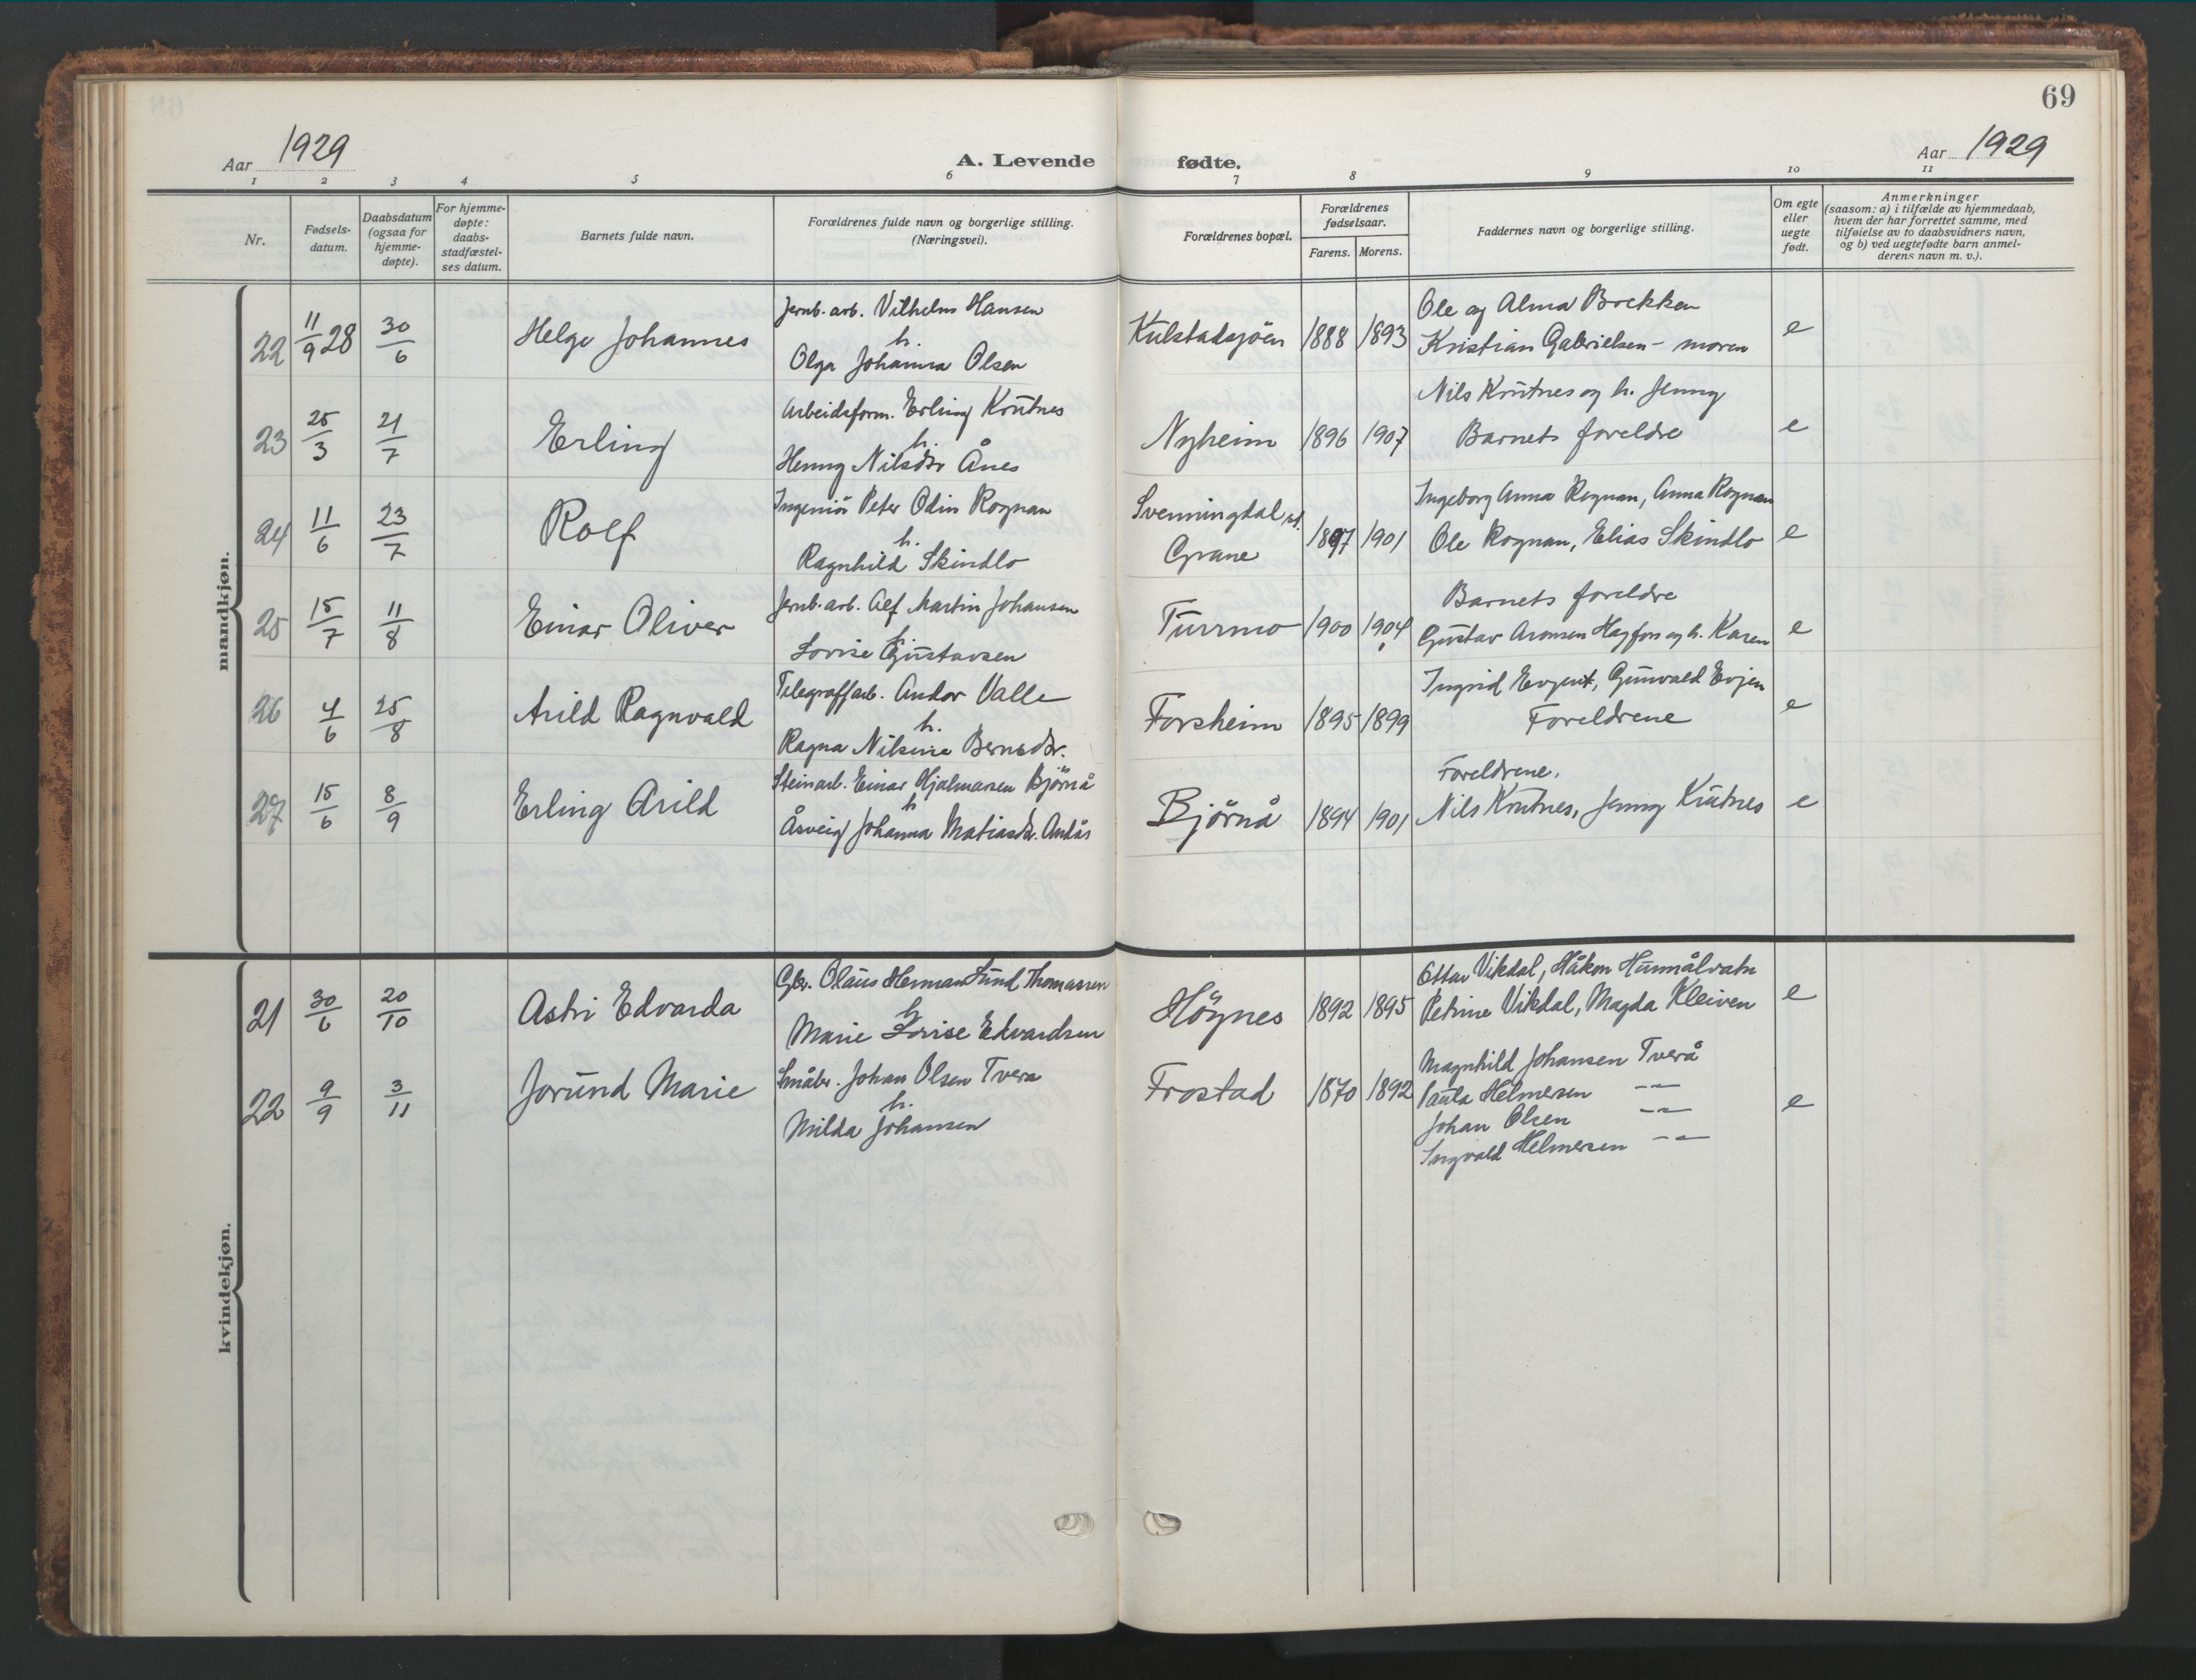 69
Aar 1929
A. Levende fødte.
Aar 1929
1 2 3 4 5 6 7 8 9 10 11
Nr.
Fødsels-
datum.
Daabsdatum
(ogsaa for
hjemme-
døpte).
For hjemme-
døpte:
daabs-
stadfæstel-
ses datum.
Barnets fulde navn.
Forældrenes fulde navn og borgerlige stilling.
(Næringsvei).
Forældrenes bopæl.
Forældrenes
fødselsaar.
Farens. Morens.
Faddernes navn og borgerlige stilling.
Om egte
eller
uegte
født.
Anmerkninger
(saasom: a) i tilfælde av hjemmedaab,
hvem der har forrettet samme, med
tilføielse av to daabsvidners navn,
og b) ved uegtefødte barn anmel-
derens navn m. v.).
mandkjøn.
22 11/9 28 30/6 Helge Johannes
Jernb. arb. Vilhelm Hansen
h.
Olga Johanna Olsen
Kulstadsjöen 1888 1893
Ole og Alma Brekken
Kristian Gabrielsen - moren
e
23 25/3 21/7 Erling
Arbeidsform. Erling Krutnes
h.
Henny Nilsdtr Ånes
Nyheim 1896 1907
Nils Krutnes og h. Jenny
Barnets foreldre
e
24 11/6 23/7 Rolf
Ingeniör Peter Odin Rognan
h.
Ragnhild Skindlo
Svenningdal st.
Grane
1897 1901
Ingeborg Anna Rognan, Anna Rognan
Ole Rognan, Elias Skindlo
e
25 15/7 11/8 Einar Oliver
Jernb. arb. Alf Martin Johansen
h.
Lovise Gustavsen
Turrmo 1900 1904
Barnets foreldre
Gustav Aronsen Hagfors og h. Karen
e
26 4/6 25/8 Arild Ragnvald
Telegrafarb. Andor Valle
h.
Ragna Nilsine Berntsdtr.
Forsheim 1895 1899
Ingrid Evjen, Gunvald Evjen
Foreldrene
e
27 15/6 8/9 Erling Arild
Steinarb. Einar Hjalmarsen Björnå
h
Åsveig Johanna Matiasdtr. Andås
Björnå 1894 1901
Foreldrene.
Nils Krutnes, Jenny Krutnes
e
kvindekjøn.
21 30/6 20/10 Astri Edvarda
Gbr. Olaus Herman Lund Thomassen
h
Marie Lovise Edvardsen
Höynes 1892 1895
Ottar Vikdal, Håkon Hunnålvatn
Petrine Vikdal, Magda Kleiven
e
22 9/9 3/11 Jorund Marie
Småbr. Johan Olsen Tvera
h.
Milda Johansen
Frostad 1870 1892
Magnhild Johansen Tverå
Paula Helmersen -"-
Johan Olsen -"-
Ingvald Helmersen -"-
e